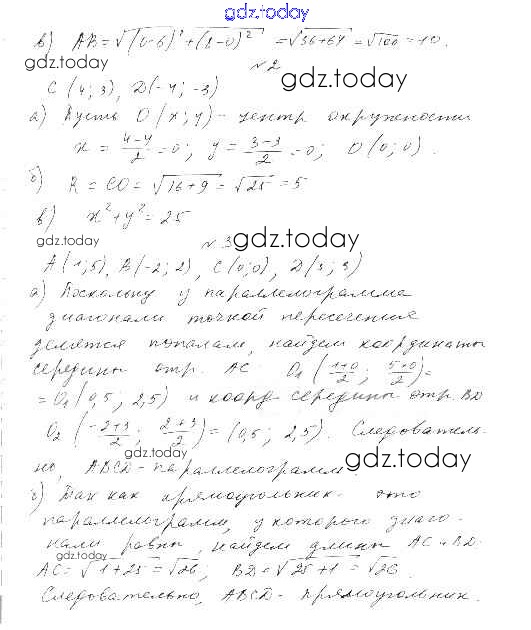 gdz.today
в) AB = √((0-6)² + (8-0)²) = √36+64 = √100 = 10.
gdz.today
№2
gdz.today
C (4; 3), D(-4; -3)
а) Пусть O (x; y) - центр окружности
gdz.today
x = (4-4)/2 = 0; y = (3-3)/2 = 0; O (0; 0).
б) R = CO = √16+9 = √25 = 5
в) x² + y² = 25
gdz.today
№3
gdz.today
A (1; 5), B(-2; 2), C (0; 0), D(3; 3)
а) Поскольку у параллелограмма
диагонали точкой пересечения
делятся пополам, найдем координаты
середины отр. AC O₁ ((1+0)/2; (5+0)/2) =
= O₁ (0,5; 2,5) и коорд. середины отр. BD
O₂ ((-2+3)/2; (2+3)/2) = (0,5; 2,5). Следователь-
gdz.today
но, ABCD - параллелограмм.
gdz.today
б) Так как прямоугольник - это
параллелограмм, у которого диаго-
нали равны, найдем длины AC и BD:
gdz.today
AC = √1+25 = √26; BD = √25+1 = √26.
Следовательно, ABCD - прямоугольник.